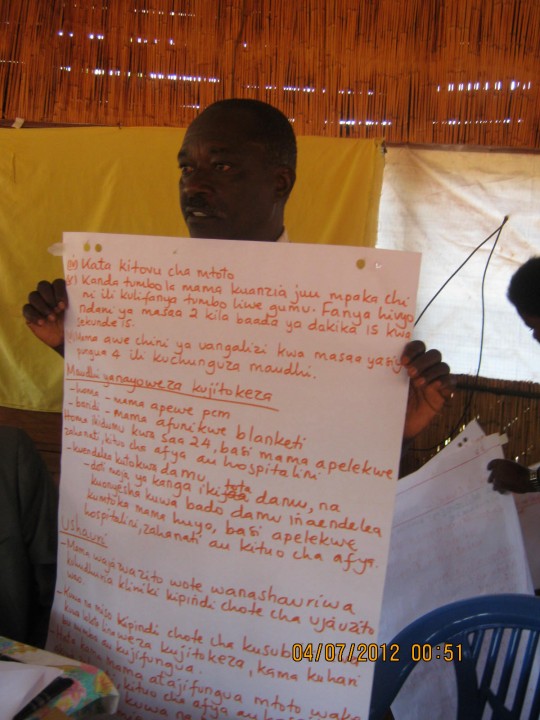 iv) Kata kitovu cha mtoto
v) Kanda tumbo la mama kuanzia juu mpaka chi
ni ili kulifanya tumbo liwe gumu. Fanya hivyo
ndani ya masaa 2 kila baada ya dakika 15 kwa
sekunde 15.
Mama awe chini ya uangalizi kwa masaa ya
pungua 4 ili kuchunguza maudhi.
Maudhi yanayoweza kujitokeza
- homa - mama apewe pcm
- baridi - mama afunikwe blanketi
Homa ikidumu kwa saa 24, basi mama apelekwe
zahanati, kituo cha afya au hospitalini
- kuendelea kutokwa damu,
- doti moja ya kanga ikitota damu, na
kuonyesha kuwa bado damu inaendelea
kumtoka mama huyo, basi apelekwe
hospitalini, zahanati au kituo cha afya.
Ushauri
- Mama wajawazito wote wanashauriwa
kuhudhuria kliniki kipindi chote cha ujauzito
wao.
- Kuwa na kipindi chote cha
kwa lolote linaweza kujitokeza, kama kuhari
bu mimba au kujifungua.
- Hata kama mama atajifungua mtoto
kituo cha afya au
kuwa na
04/07/2012 00:51